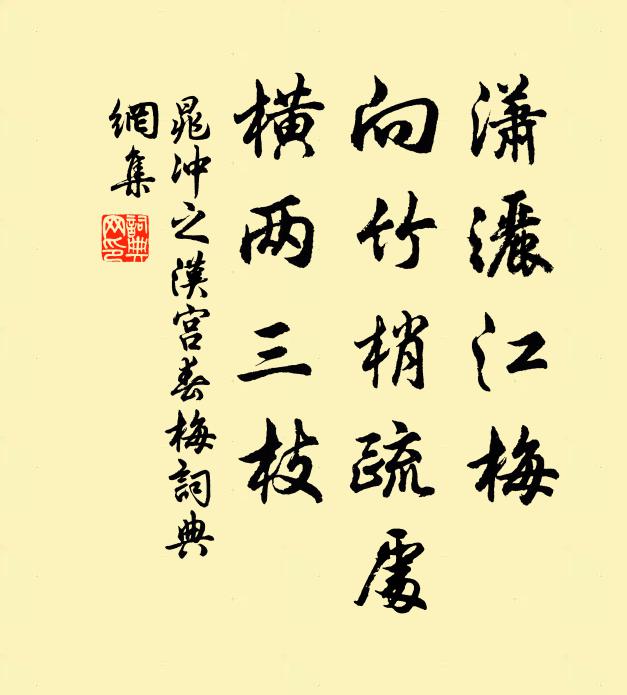 瀟灑江梅
向竹梢疏處
橫两三枝
晁冲之漢宮春梅詞典
網集
詞典
网印